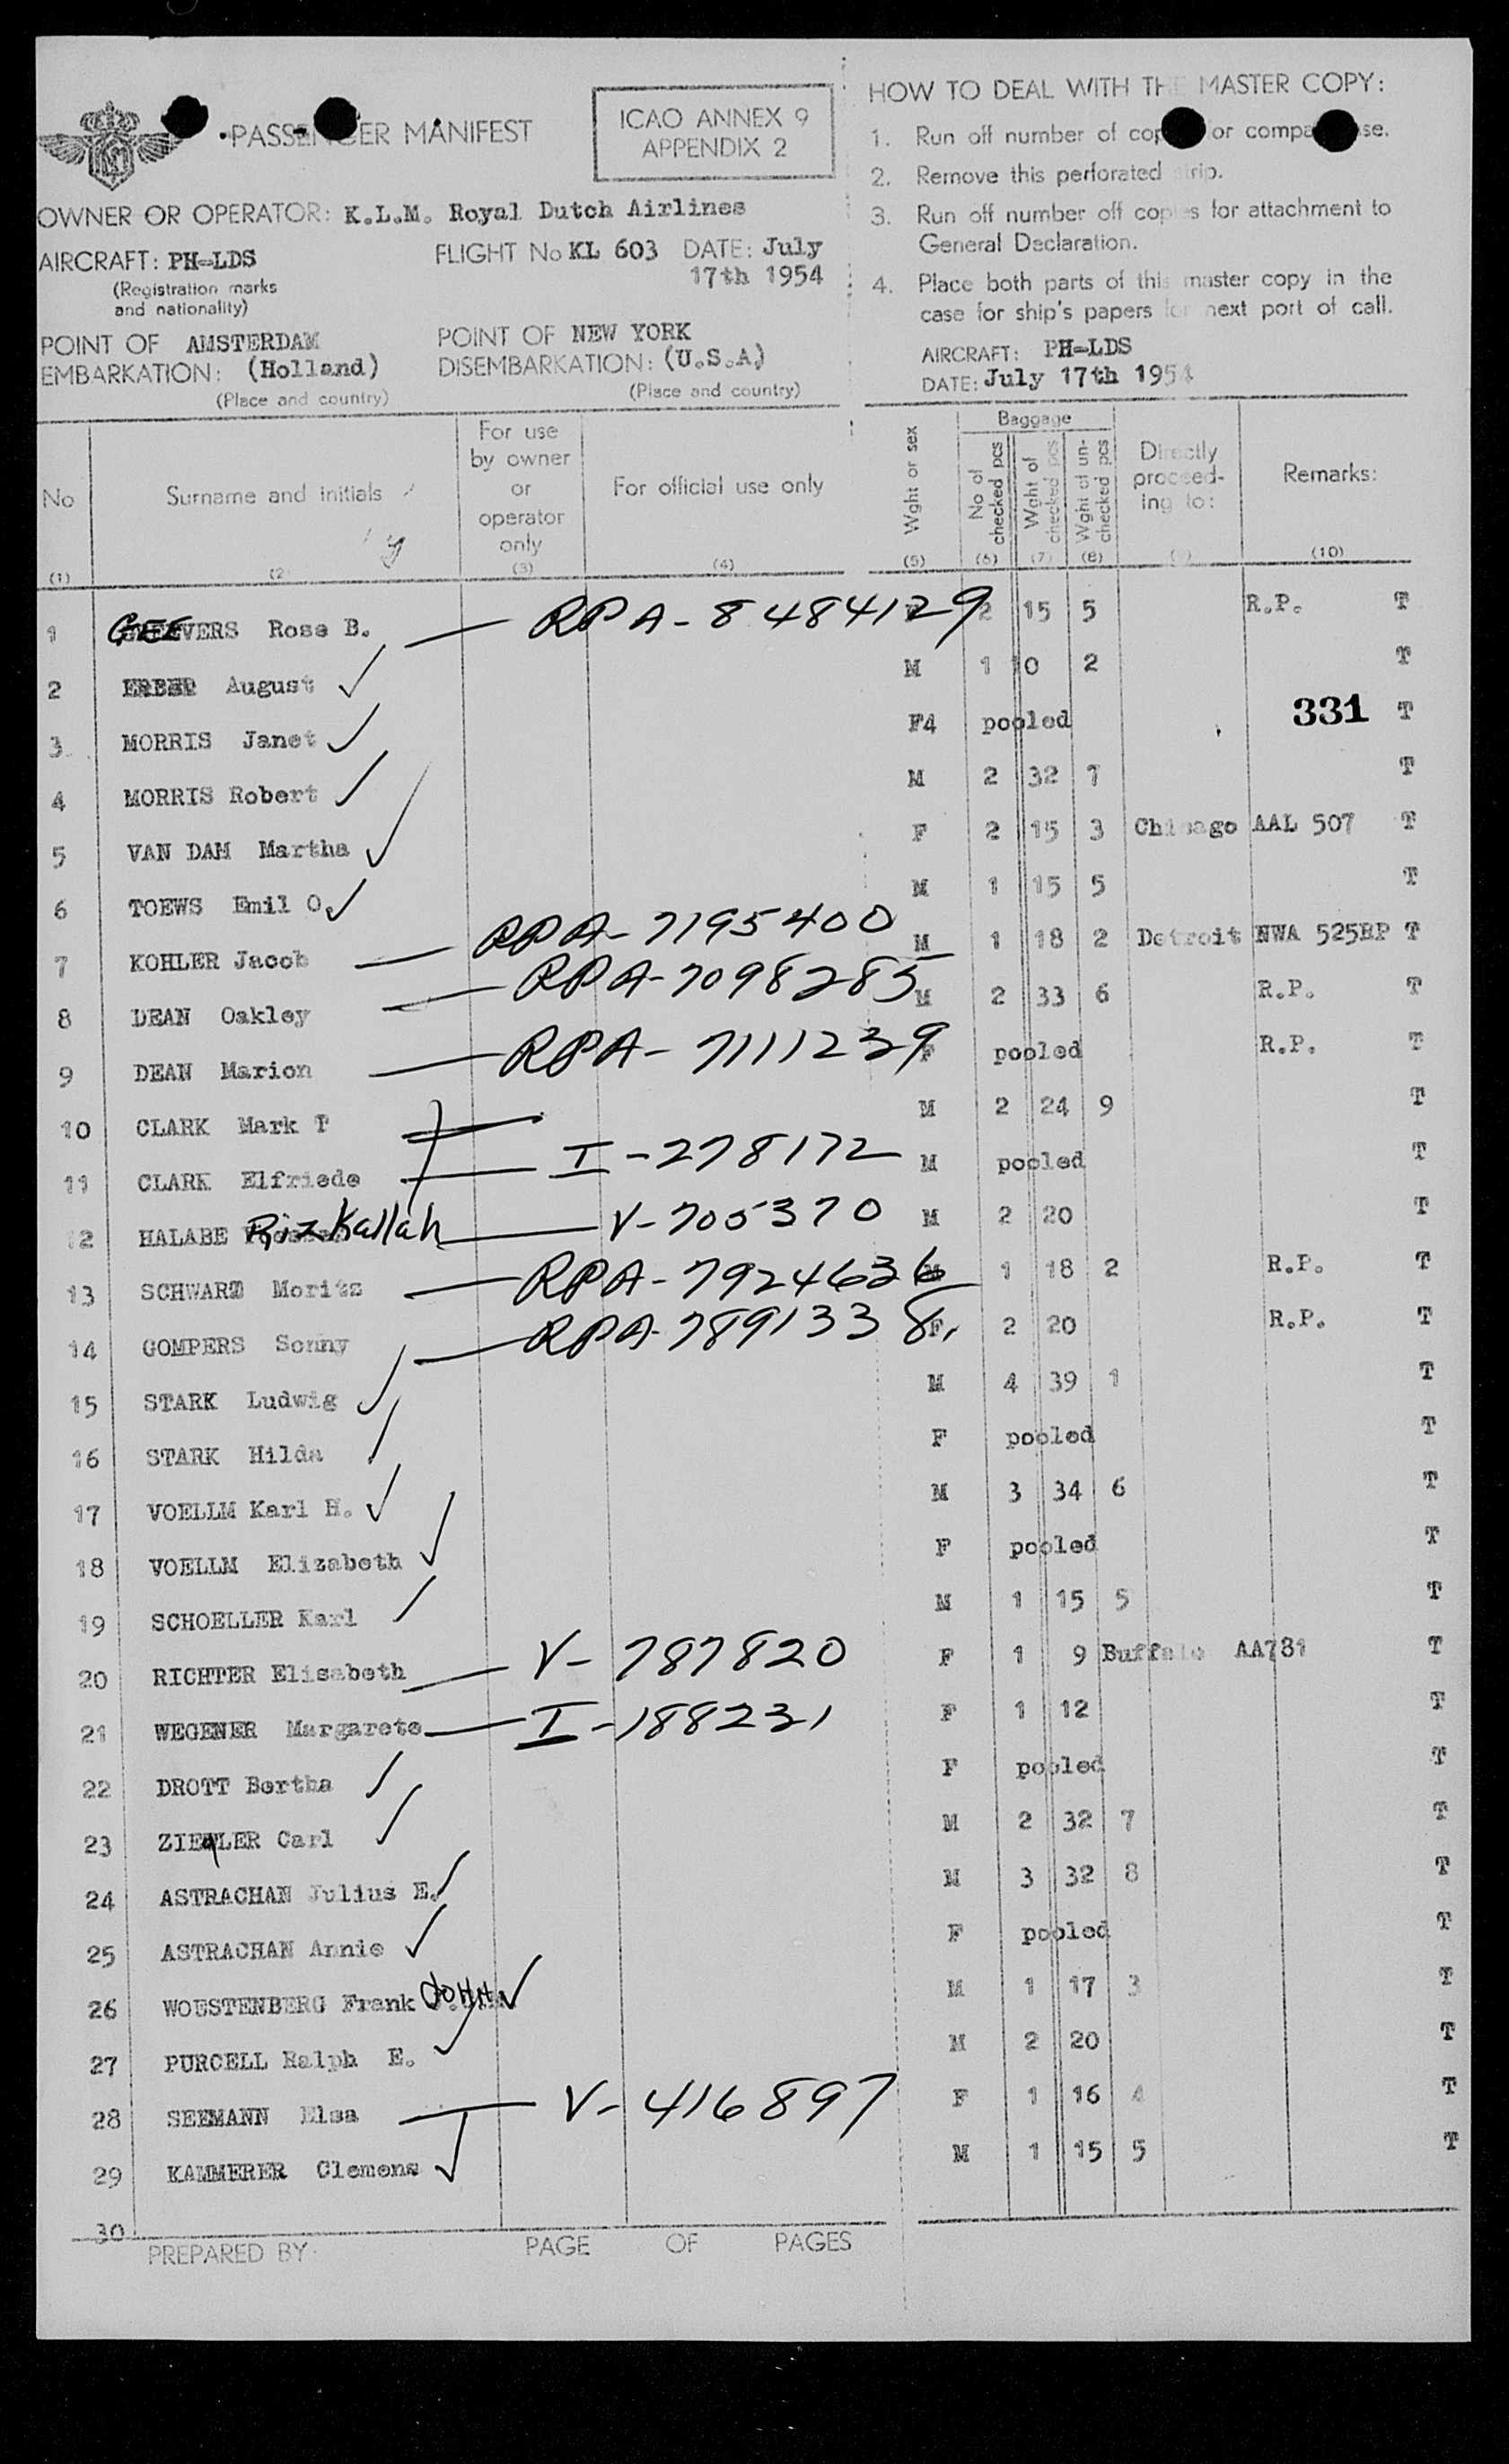 PASSENGER MANIFEST
ICAO ANNEX 9
APPENDIX 2
OWNER OR OPERATOR: K.L.M. Royal Dutch Airlines
AIRCRAFT: PH-LDS FLIGHT No KL 603 DATE: July
17th 1954
(Registration marks
and nationality)
POINT OF AMSTERDAM POINT OF NEW YORK
EMBARKATION: (Holland) DISEMBARKATION: (U.S.A)
(Place and country) (Place and country)
HOW TO DEAL WITH THE MASTER COPY:
1. Run off number of cop or compa se.
2. Remove this perforated strip.
3. Run off number off copies for attachment to
General Declaration.
4. Place both parts of this master copy in the
case for ship's papers for next port of call.
AIRCRAFT: PH-LDS
DATE: July 17th 1954
No Surname and initials For use by owner or operator only For official use only Wght or sex Baggage No of checked pcs Wght of checked pcs Wght of un-checked pcs Directly proceed-ing to: Remarks:
(1) (2) (3) (4) (5) (6) (7) (8) (9) (10)
1 GEEVERS Rosa B. RPA-8484129 2 15 5 R.P. T
2 August M 1 10 2 T
3 MORRIS Janet F4 pooled 331 T
4 MORRIS Robert M 2 32 7 T
5 VAN DAM Martha F 2 15 3 Chicago AAL 507 T
6 TOEWS Emil O. M 1 15 5 T
7 KOHLER Jacob RPA-7195400 M 1 18 2 Detroit NWA 525BP T
8 DEAN Oakley RPA-7098285 M 2 33 6 R.P. T
9 DEAN Marion RPA-7111239 F pooled R.P. T
10 CLARK Mark T M 2 24 9 T
11 CLARK Elfriede I-278172 M pooled T
12 HALABE Rizkallah V-705370 M 2 20 T
13 SCHWARZ Moritz RPA-7924636 M 1 18 2 R.P. T
14 GOMPERS Sonny RPA-7891338 F 2 20 R.P. T
15 STARK Ludwig M 4 39 1 T
16 STARK Hilda F pooled T
17 VOELLM Karl H. M 3 34 6 T
18 VOELLM Elizabeth F pooled T
19 SCHOELLER Karl M 1 15 5 T
20 RICHTER Elisabeth V-787820 F 1 9 Buffalo AA781 T
21 WEGENER Margarete I-188231 F 1 12 T
22 DROTT Bertha F pooled T
23 ZIEGLER Carl M 2 32 7 T
24 ASTRACHAN Julius E. M 3 32 8 T
25 ASTRACHAN Annie F pooled T
26 WOUSTENBERG Frank JOHN M 1 17 3 T
27 PURCELL Ralph E. M 2 20 T
28 SEEMANN Elsa V-416897 F 1 16 4 T
29 KAMMERER Clemens M 1 15 5 T
30
PREPARED BY: PAGE OF PAGES